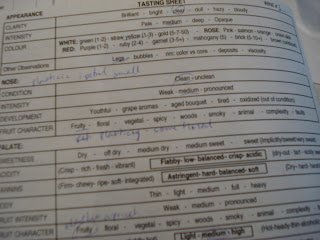 TASTING SHEET
APPEARANCE
CLARITY Brilliant - bright - clear - dull - hazy - cloudy
INTENSITY Pale - medium - deep - Opaque
COLOUR WHITE: green (1-2) - straw yellow (1-3) - gold (5-7-50) - ROSE: Pink - salmon - orange
RED: Purple (1-2) - ruby (2-4) - garnet (3-5+) - mahogany (5) - brick (5-10+)
Other Observations Legs - bubbles - rim: color vs core - deposits - viscosity
NOSE: smell
CONDITION Clean - unclean
INTENSITY Weak - medium - pronounced
DEVELOPMENT Youthful - grape aromas - aged bouquet - tired - oxidized (out of condition)
FRUIT CHARACTER Fruity - floral - vegetal - spicy - woods - smoky - animal - complexity - faulty
PALATE:
SWEETNESS Dry - off dry - medium dry - medium sweet - sweet
ACIDITY (Crisp - rich - fresh - vibrant) Flabby - low - balanced - crisp - acidic
(Firm - chewy - ripe - soft - integrated) Astringent - hard - balanced - soft
BODY Thin - light - medium - full - heavy
FRUIT INTENSITY Weak - medium - pronounced
FRUIT CHARACTER Fruity - floral - vegetal - spicy - woods - smoky - animal - complexity
Light - medium - high